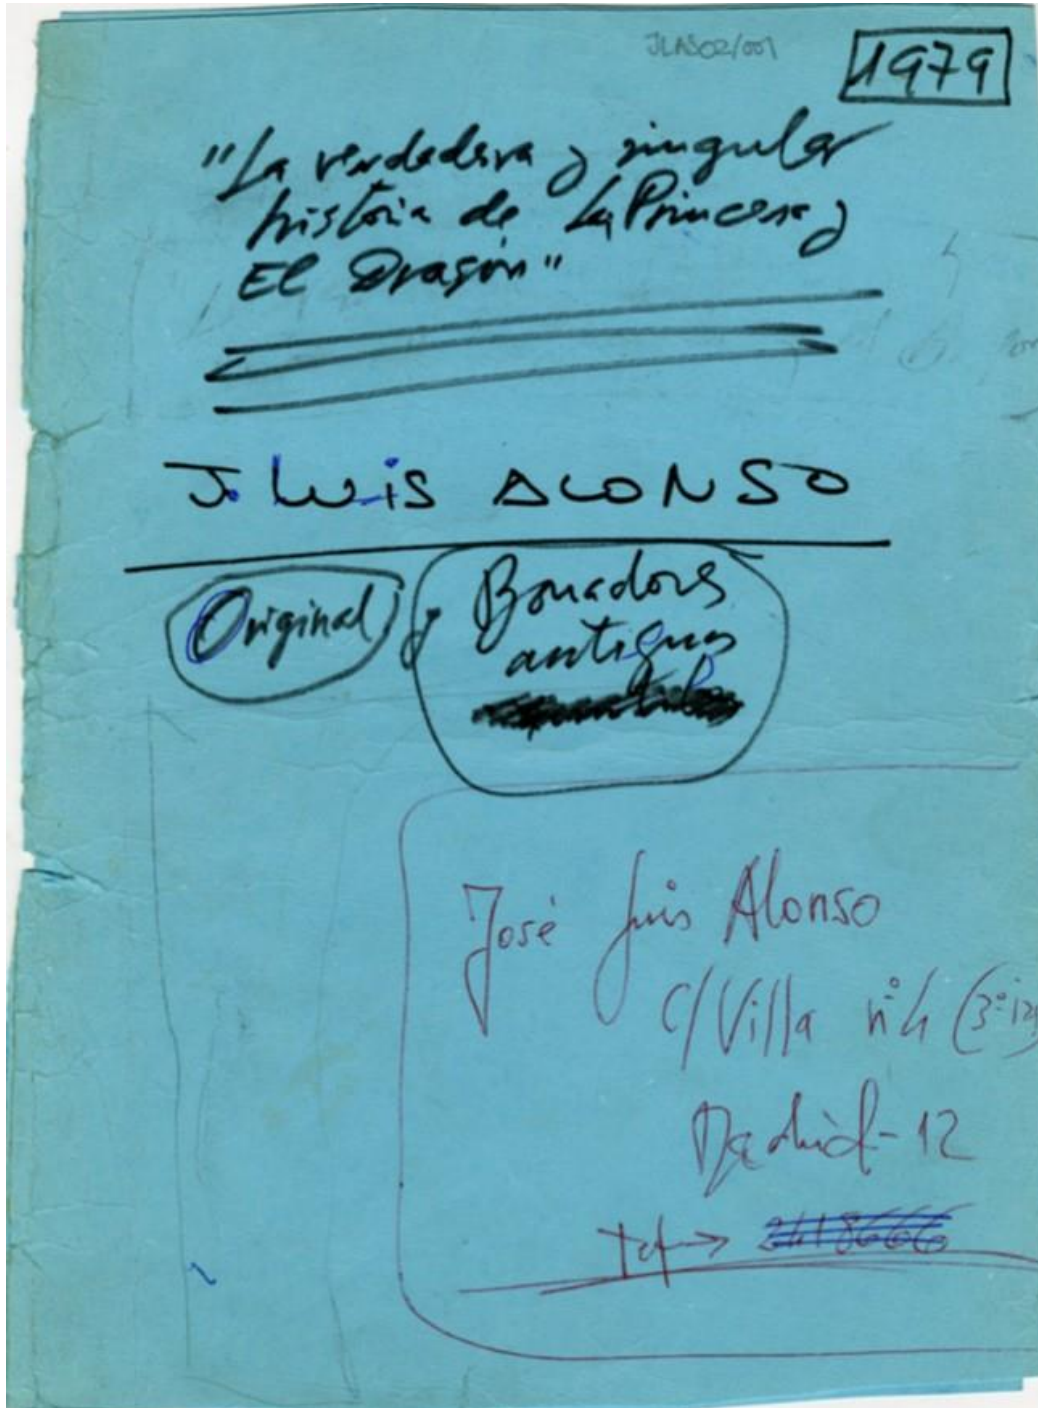 JLAS02/001
1979
"La verdadera y singular
historia de La Princesa y
El Dragón"
J. LUIS ALONSO
Original y Borradores
antiguos
José Luis Alonso
C/ Villa nº 4 (3º
Madrid-12
Tef→ 2418666